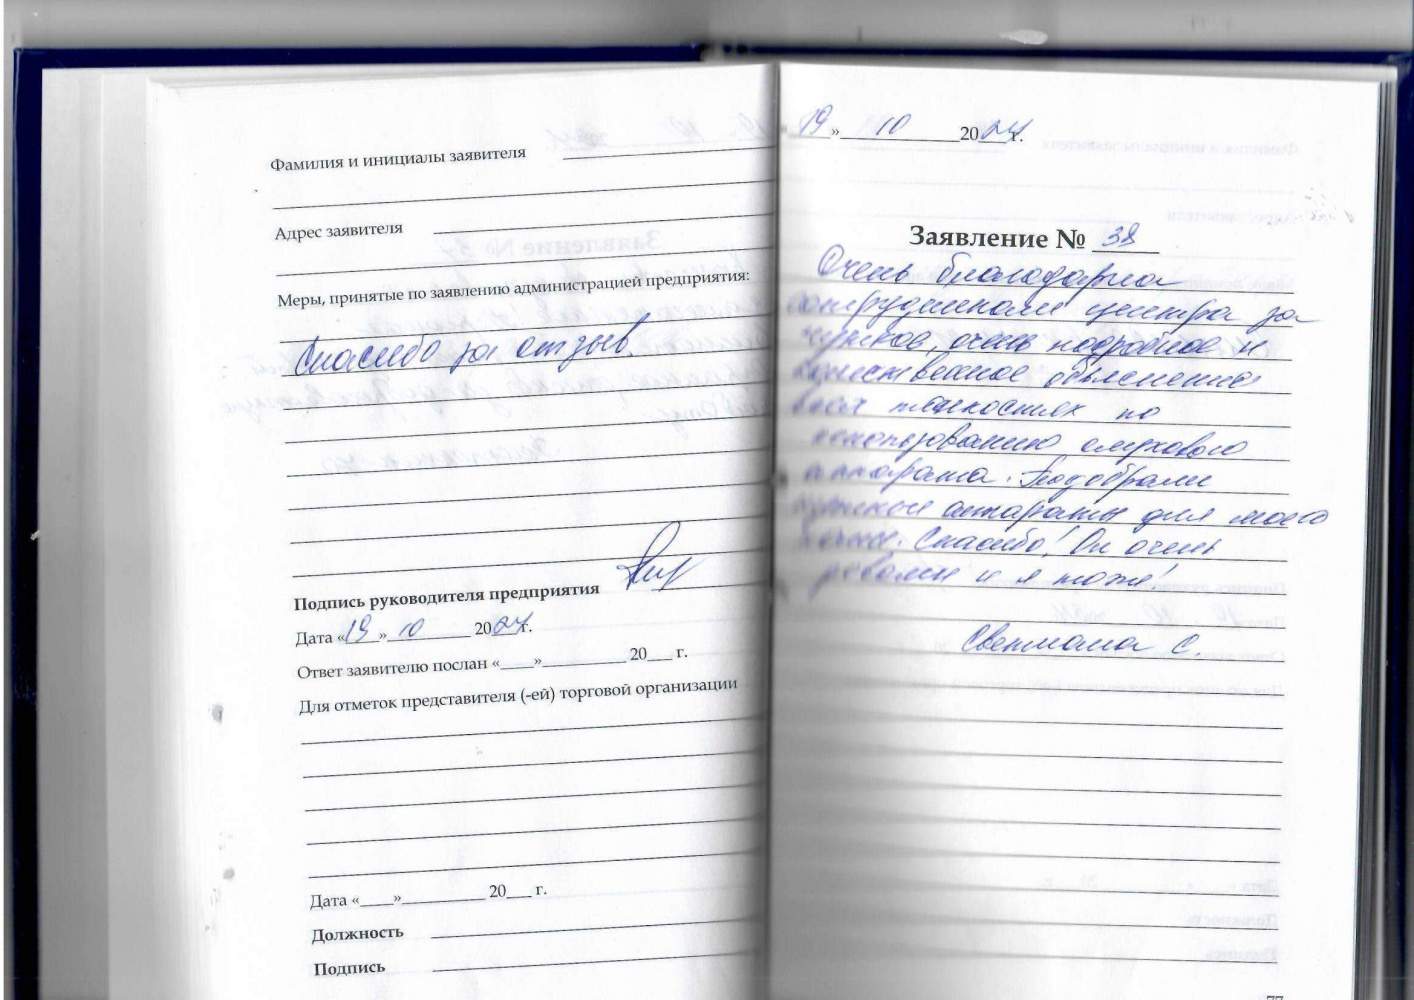 Фамилия и инициалы заявителя
Адрес заявителя
Меры, принятые по заявлению администрацией предприятия:
Спасибо за отзыв.
Подпись руководителя предприятия
Дата «19» 10 2024г.
Ответ заявителю послан «____»__________ 20___ г.
Для отметок представителя (-ей) торговой организации
Дата «____»__________ 20___ г.
Должность
Подпись
19» 10 2024г.
Заявление № 38
Очень благодарна
сотрудникам центра за
очень подробное и
качественное объяснение
всех тонкостях по
использованию слухового
аппарата. Подобрали
аппараты для моего
Спасибо! Он очень
доволен и я тоже!
Светлана С.
77